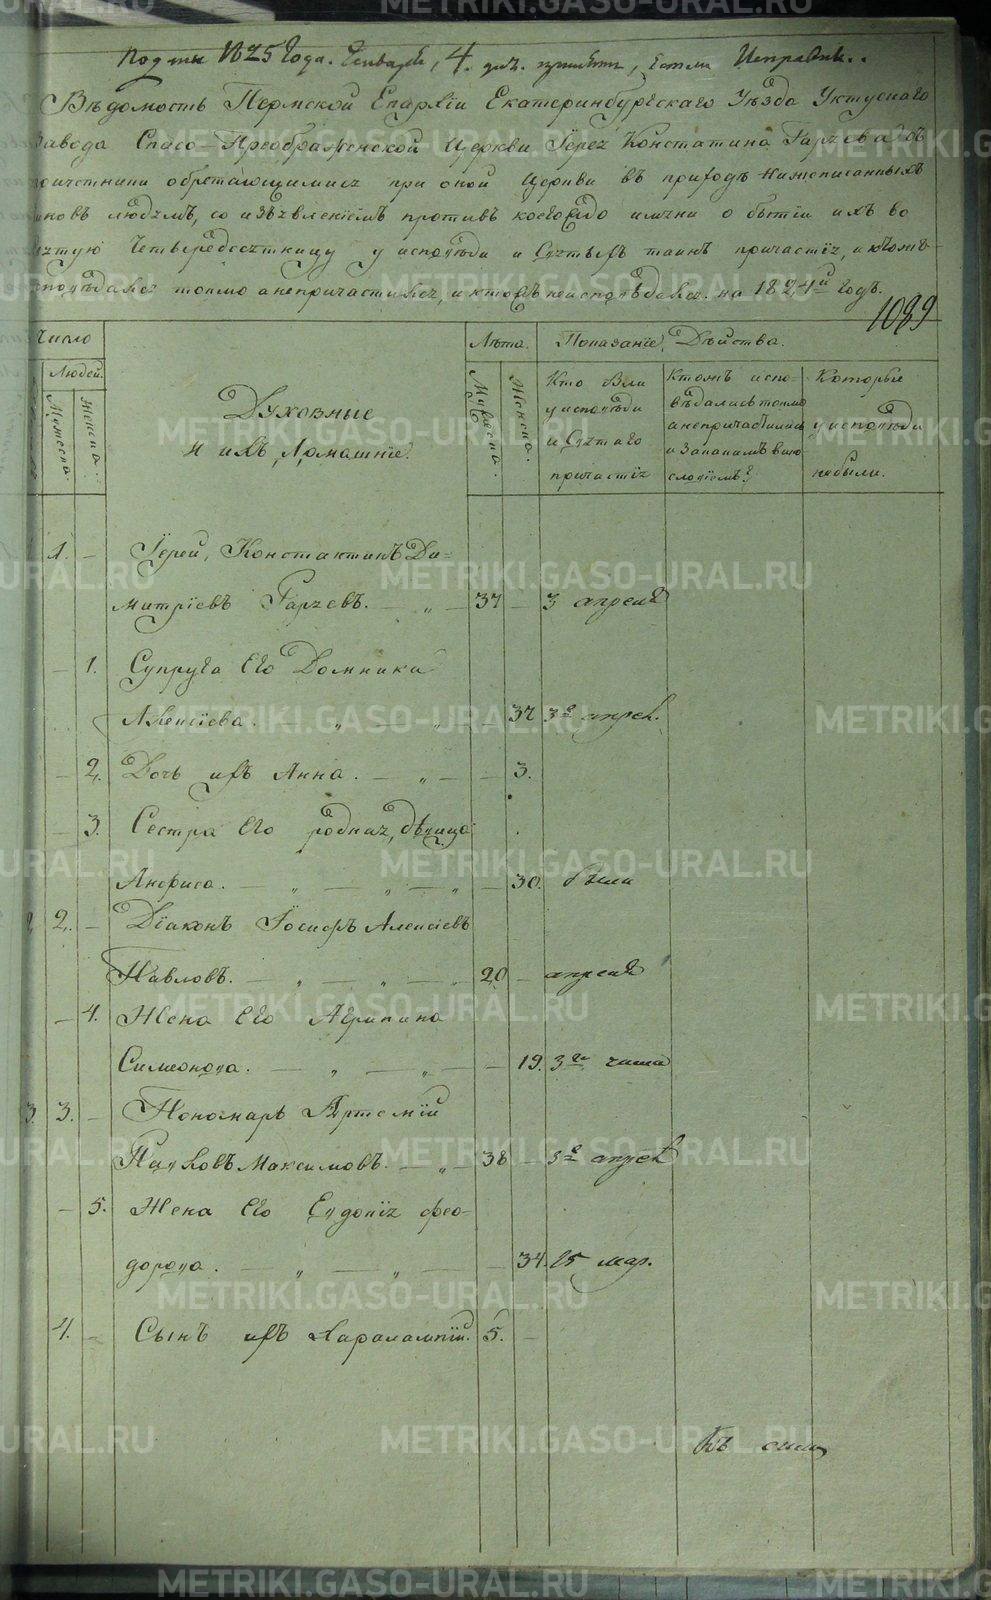 1825 Года. Генваря, 4. дня.
Вѣдомость Пермской Епархіи Екатеринбургскаго Уѣзда Уктусскаго
Завода Спасо-Преображенской Церкви Іерея Констатина Гаряева съ
причетники обретающимися при оной Церкви въ приходѣ нижеписанныхъ
чиновъ людямъ, со изъявленіемъ противъ коегождо имени о бытіи ихъ во
святую Четыредесятницу у исповѣди и Святыхъ таинъ причастія, и ктожъ
исповѣдался токмо а непричастился, и ктожъ неисповѣдался. на 1824й Годъ.
1089
Число
Лѣта.
Показаніе Дѣйства.
Людей.
Мужеска.
Женска.
Духовные
И ихъ Домашніе.
Мужеска.
Женска.
Кто были
у исповѣди
и Святаго
причастія
Ктожъ испо-
вѣдались токмо
а непричастились
и за какимъ вино
словіемъ
Которые
у исповѣди
небыли.
1. — Іерей, Константинъ Ди-
митріевъ Гаряевъ. — „ — 37 — 3 апреля
— 1. Супруга Его Домника
Алексіева. — „ — „ — 37 3е апрел.
— 2. Дочь ихъ Анна. — „ — — 3.
— 3. Сестра Его родная, дѣвица
Анфиса. — „ — „ — „ — 30. были
2, 2. — Діаконъ Іосифъ Алексіевъ
Павловъ. — „ — „ — „ 20 — апреля
— 4. Жена Его Агрипина
Симеонова. — „ — „ — — 19. 3го числа
3. 3. — Пономарь Артемій
Павловъ Максимовъ. — „ — 38 — 3е апрел
— 5. Жена Его Евдокія Фео-
дорова. — „ — „ — — 34. 25 мар.
4. — Сынъ ихъ Харалампій. 5. —
Къ сим